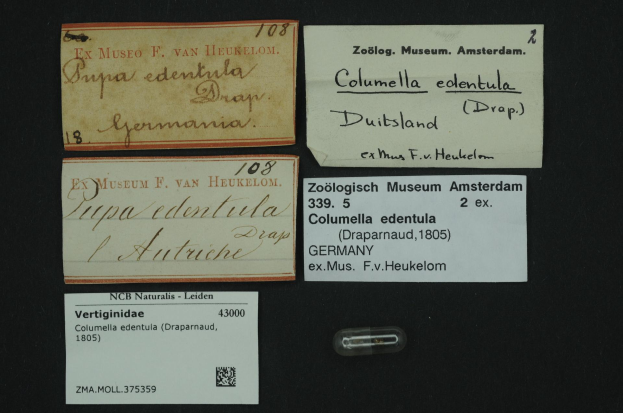 108
Ex Museo F. van Heukelom.
Pupa edentula
Drap.
Germania.
18
2
Zoölog. Museum. Amsterdam.
Columella edentula
(Drap.)
Duitsland
ex Mus F. v. Heukelom
108
Ex Museum F. van Heukelom.
Pupa edentula
Drap
Autriche
Zoölogisch Museum Amsterdam
339. 5 2 ex.
Columella edentula
(Draparnaud,1805)
GERMANY
ex.Mus. F.v.Heukelom
NCB Naturalis - Leiden
Vertiginidae 43000
Columella edentula (Draparnaud,
1805)
ZMA.MOLL.375359